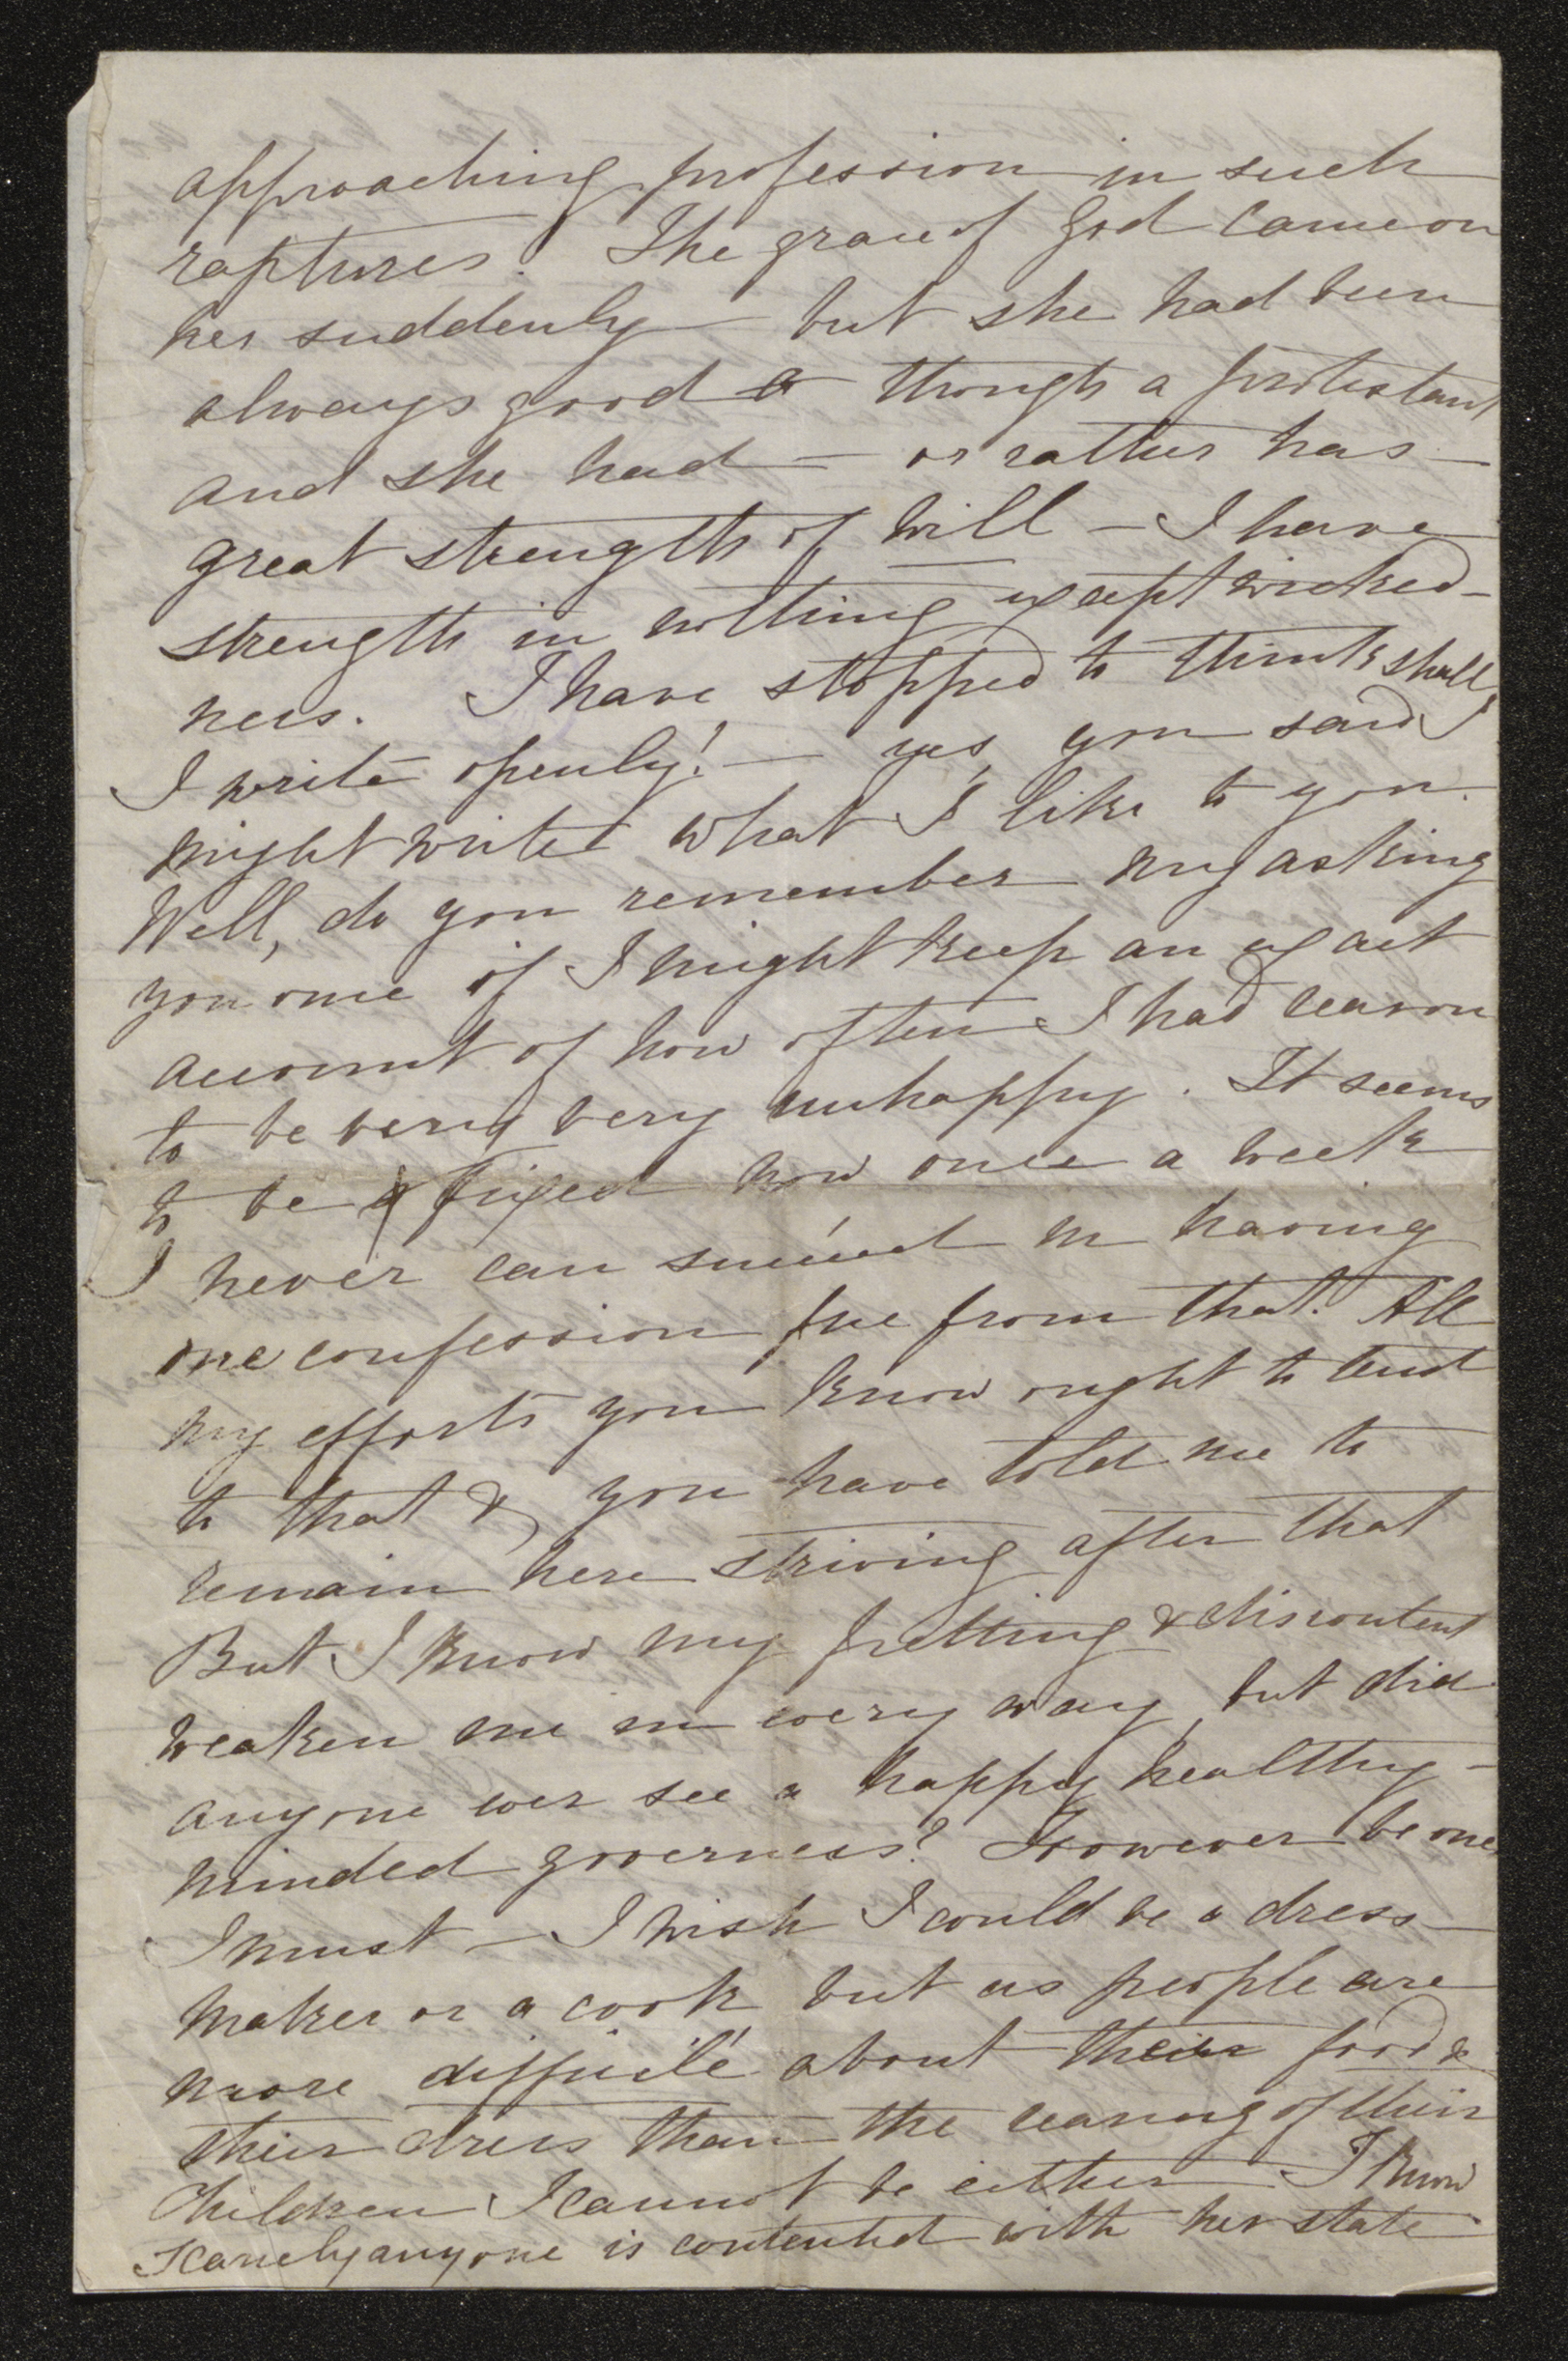 approaching profession in such
raptures. The grace of God came on
her suddenly — but she had been
always good though a protestant
and she had — or rather has —
great strength of will — I have
strength in nothing except wicked-
ness. I have stopped to think shall
I write openly! — yes, you said I
might write what I like to you.
Well, do you remember my asking
you once if I might keep an exact
account of how often I had reason
to be very very unhappy. It seems
to be fixed now once a week
I never can succeed in having
one confession free from that. All
my efforts you know ought to tend
to that & you have told me to
remain here striving after that
But I know my fretting & discontent
weaken me in every way, but did
anyone ever see a happy healthy-
minded governess? However be one
I must — I wish I could be a dress-
maker or a cook but as people are
more difficile about their food &
their dress than the rearing of their
Children I cannot be either — I know
scarcely anyone is contented with her state